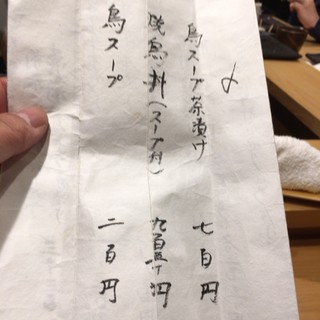 〆
鳥スープ茶漬け 七百円
焼鳥丼(スープ付) 九百五十円
鳥スープ 二百円